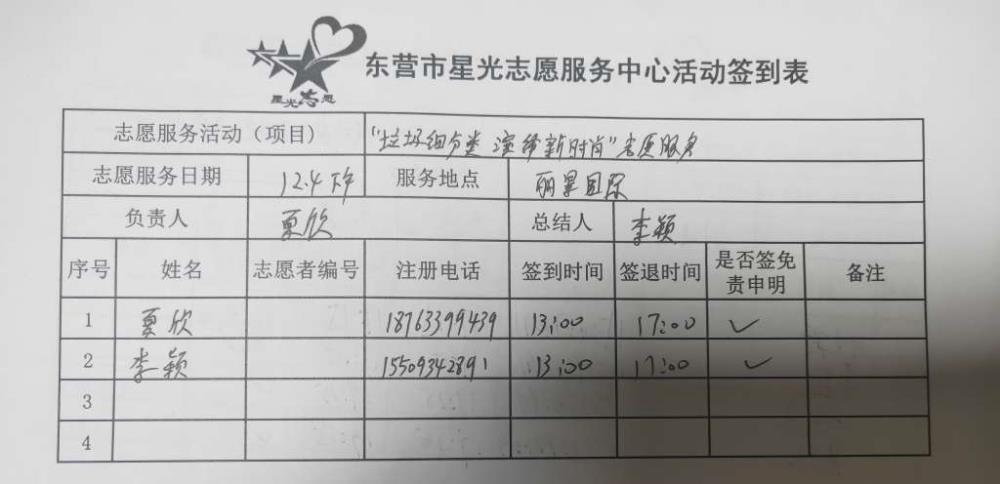 星光志愿
东营市星光志愿服务中心活动签到表
志愿服务活动（项目） "垃圾细分类 演绎新时尚"志愿服务
志愿服务日期 12.4 下午 服务地点 丽景国际
负责人 夏欣 总结人 李颖
序号 姓名 志愿者编号 注册电话 签到时间 签退时间 是否签免责申明 备注
1 夏欣 18763399439 13:00 17:00 ✓
2 李颖 15509342891 13:00 17:00 ✓
3
4